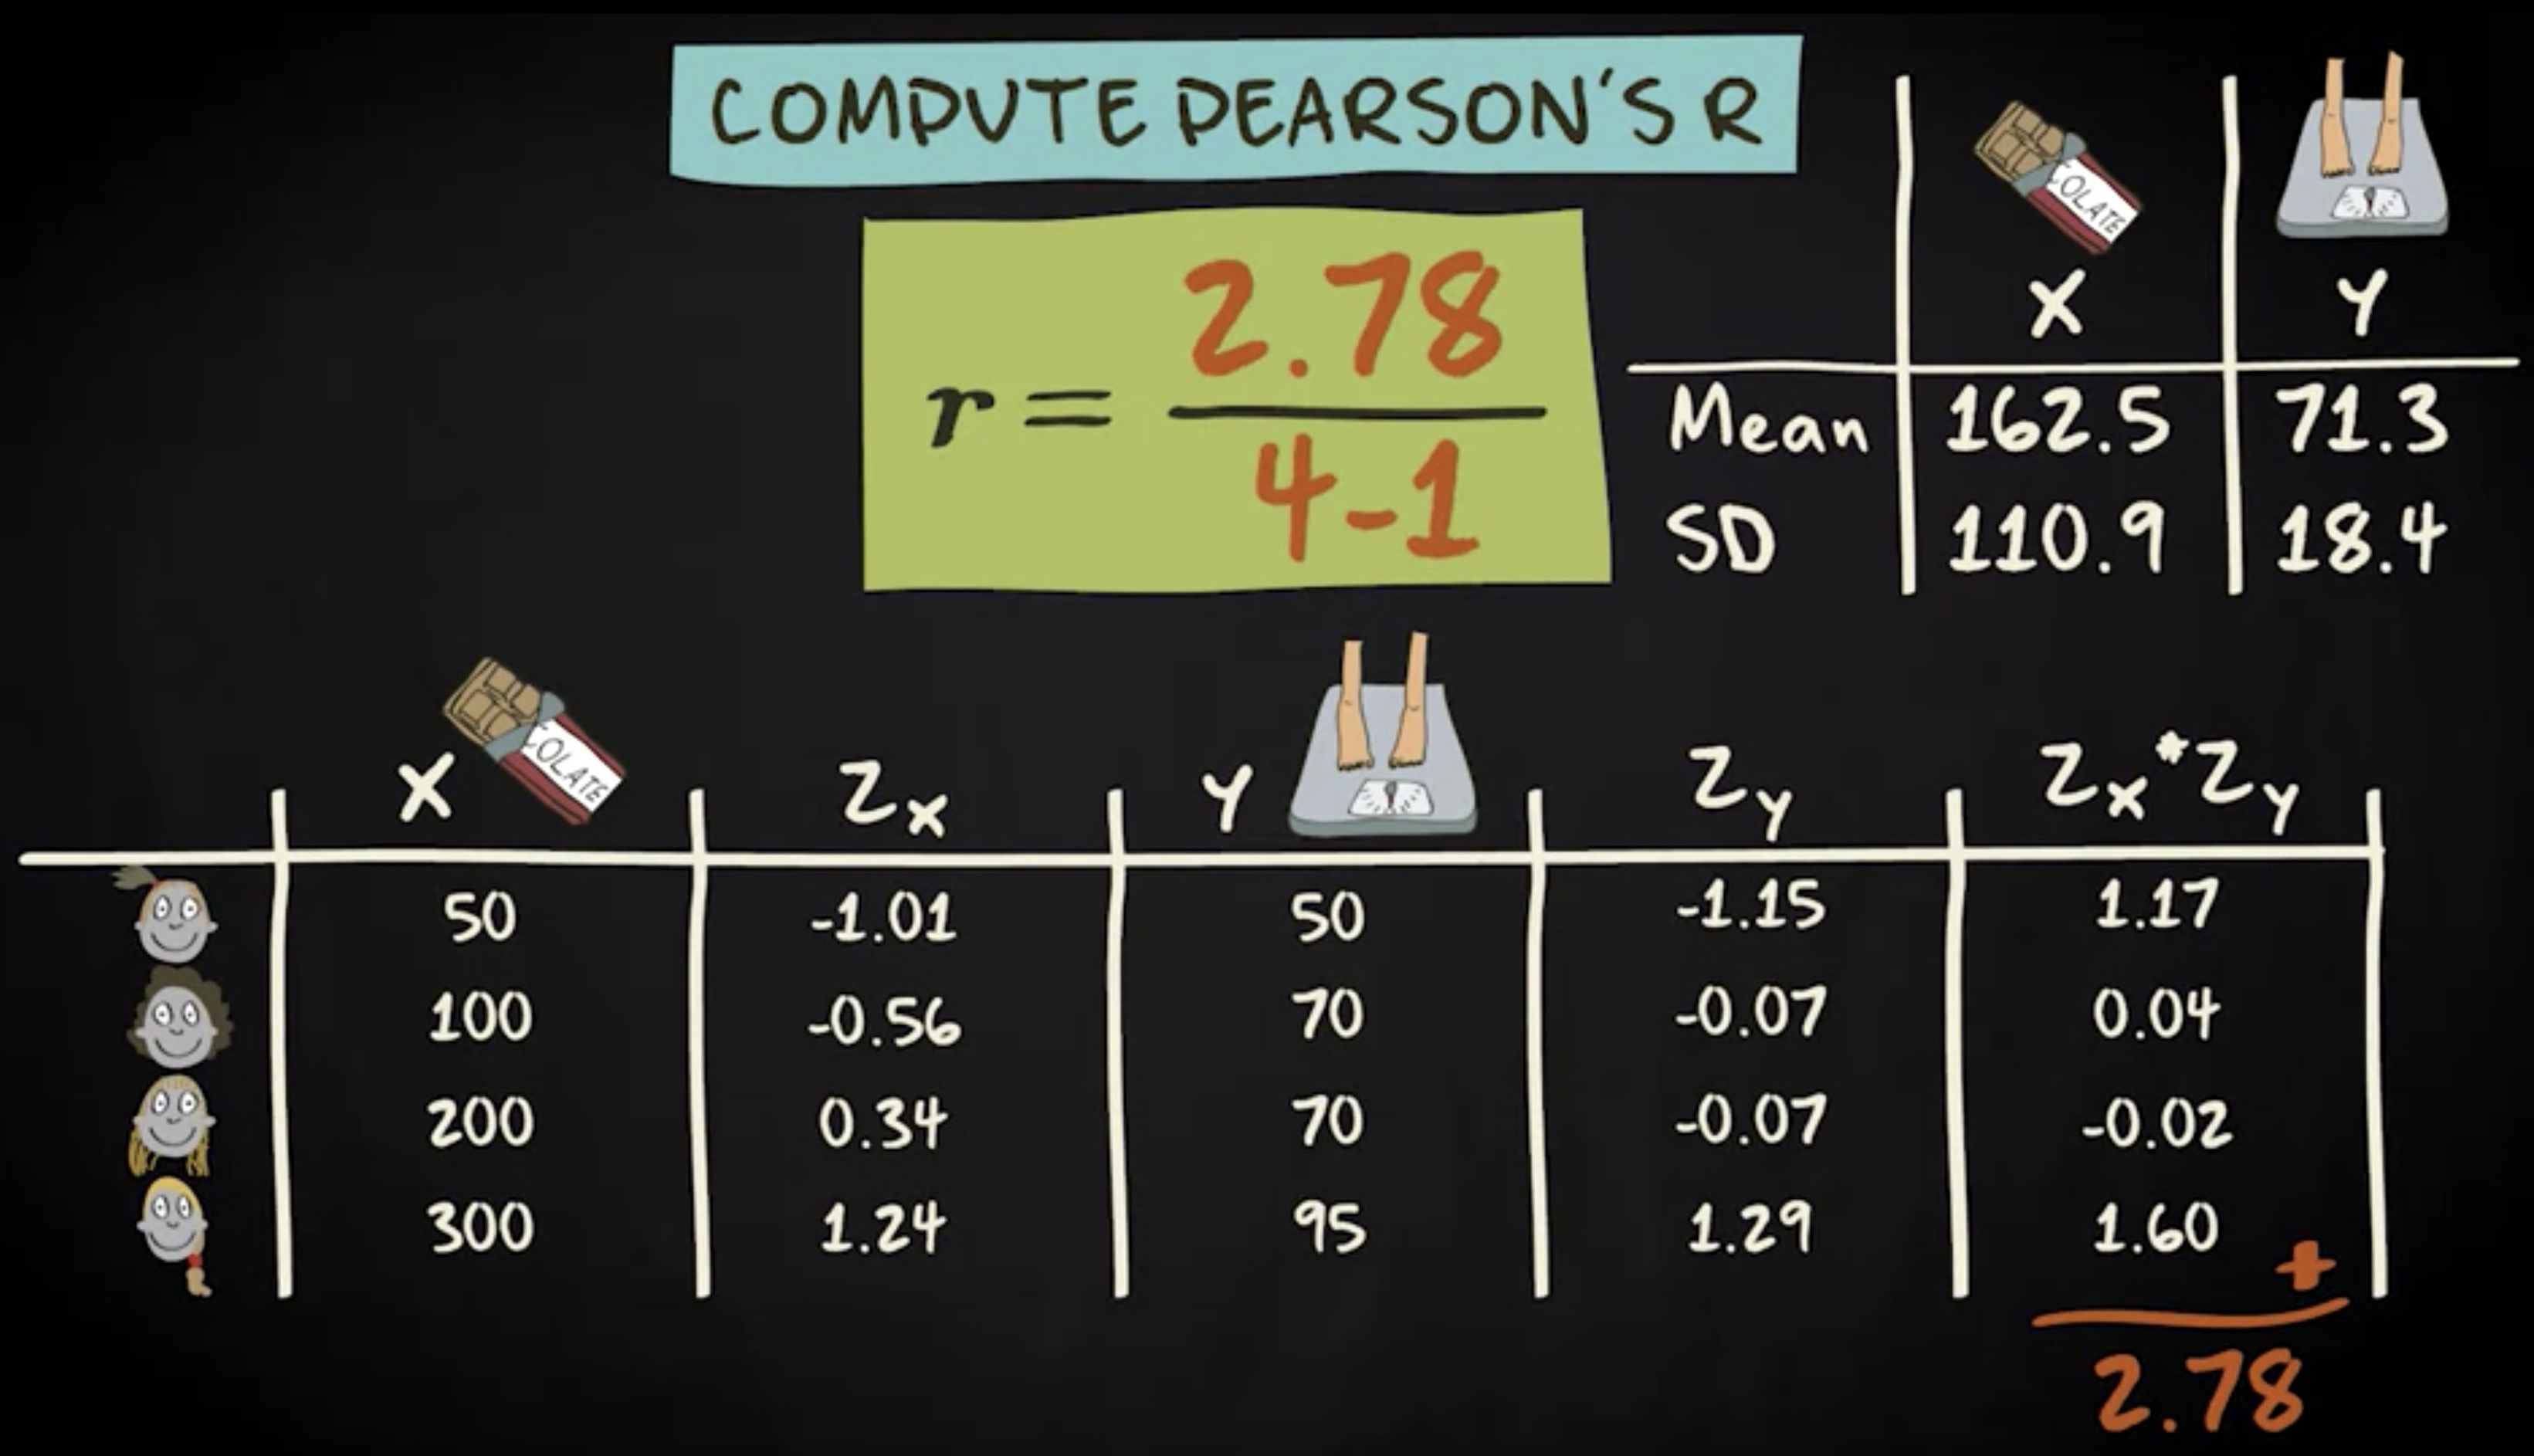 COMPUTE PEARSON'S R
r = 2.78
4-1
COLATE
X Y
Mean 162.5 71.3
SD 110.9 18.4
COLATE
X Zx Y Zy Zx*Zy
50 -1.01 50 -1.15 1.17
100 -0.56 70 -0.07 0.04
200 0.34 70 -0.07 -0.02
300 1.24 95 1.29 1.60
+
2.78